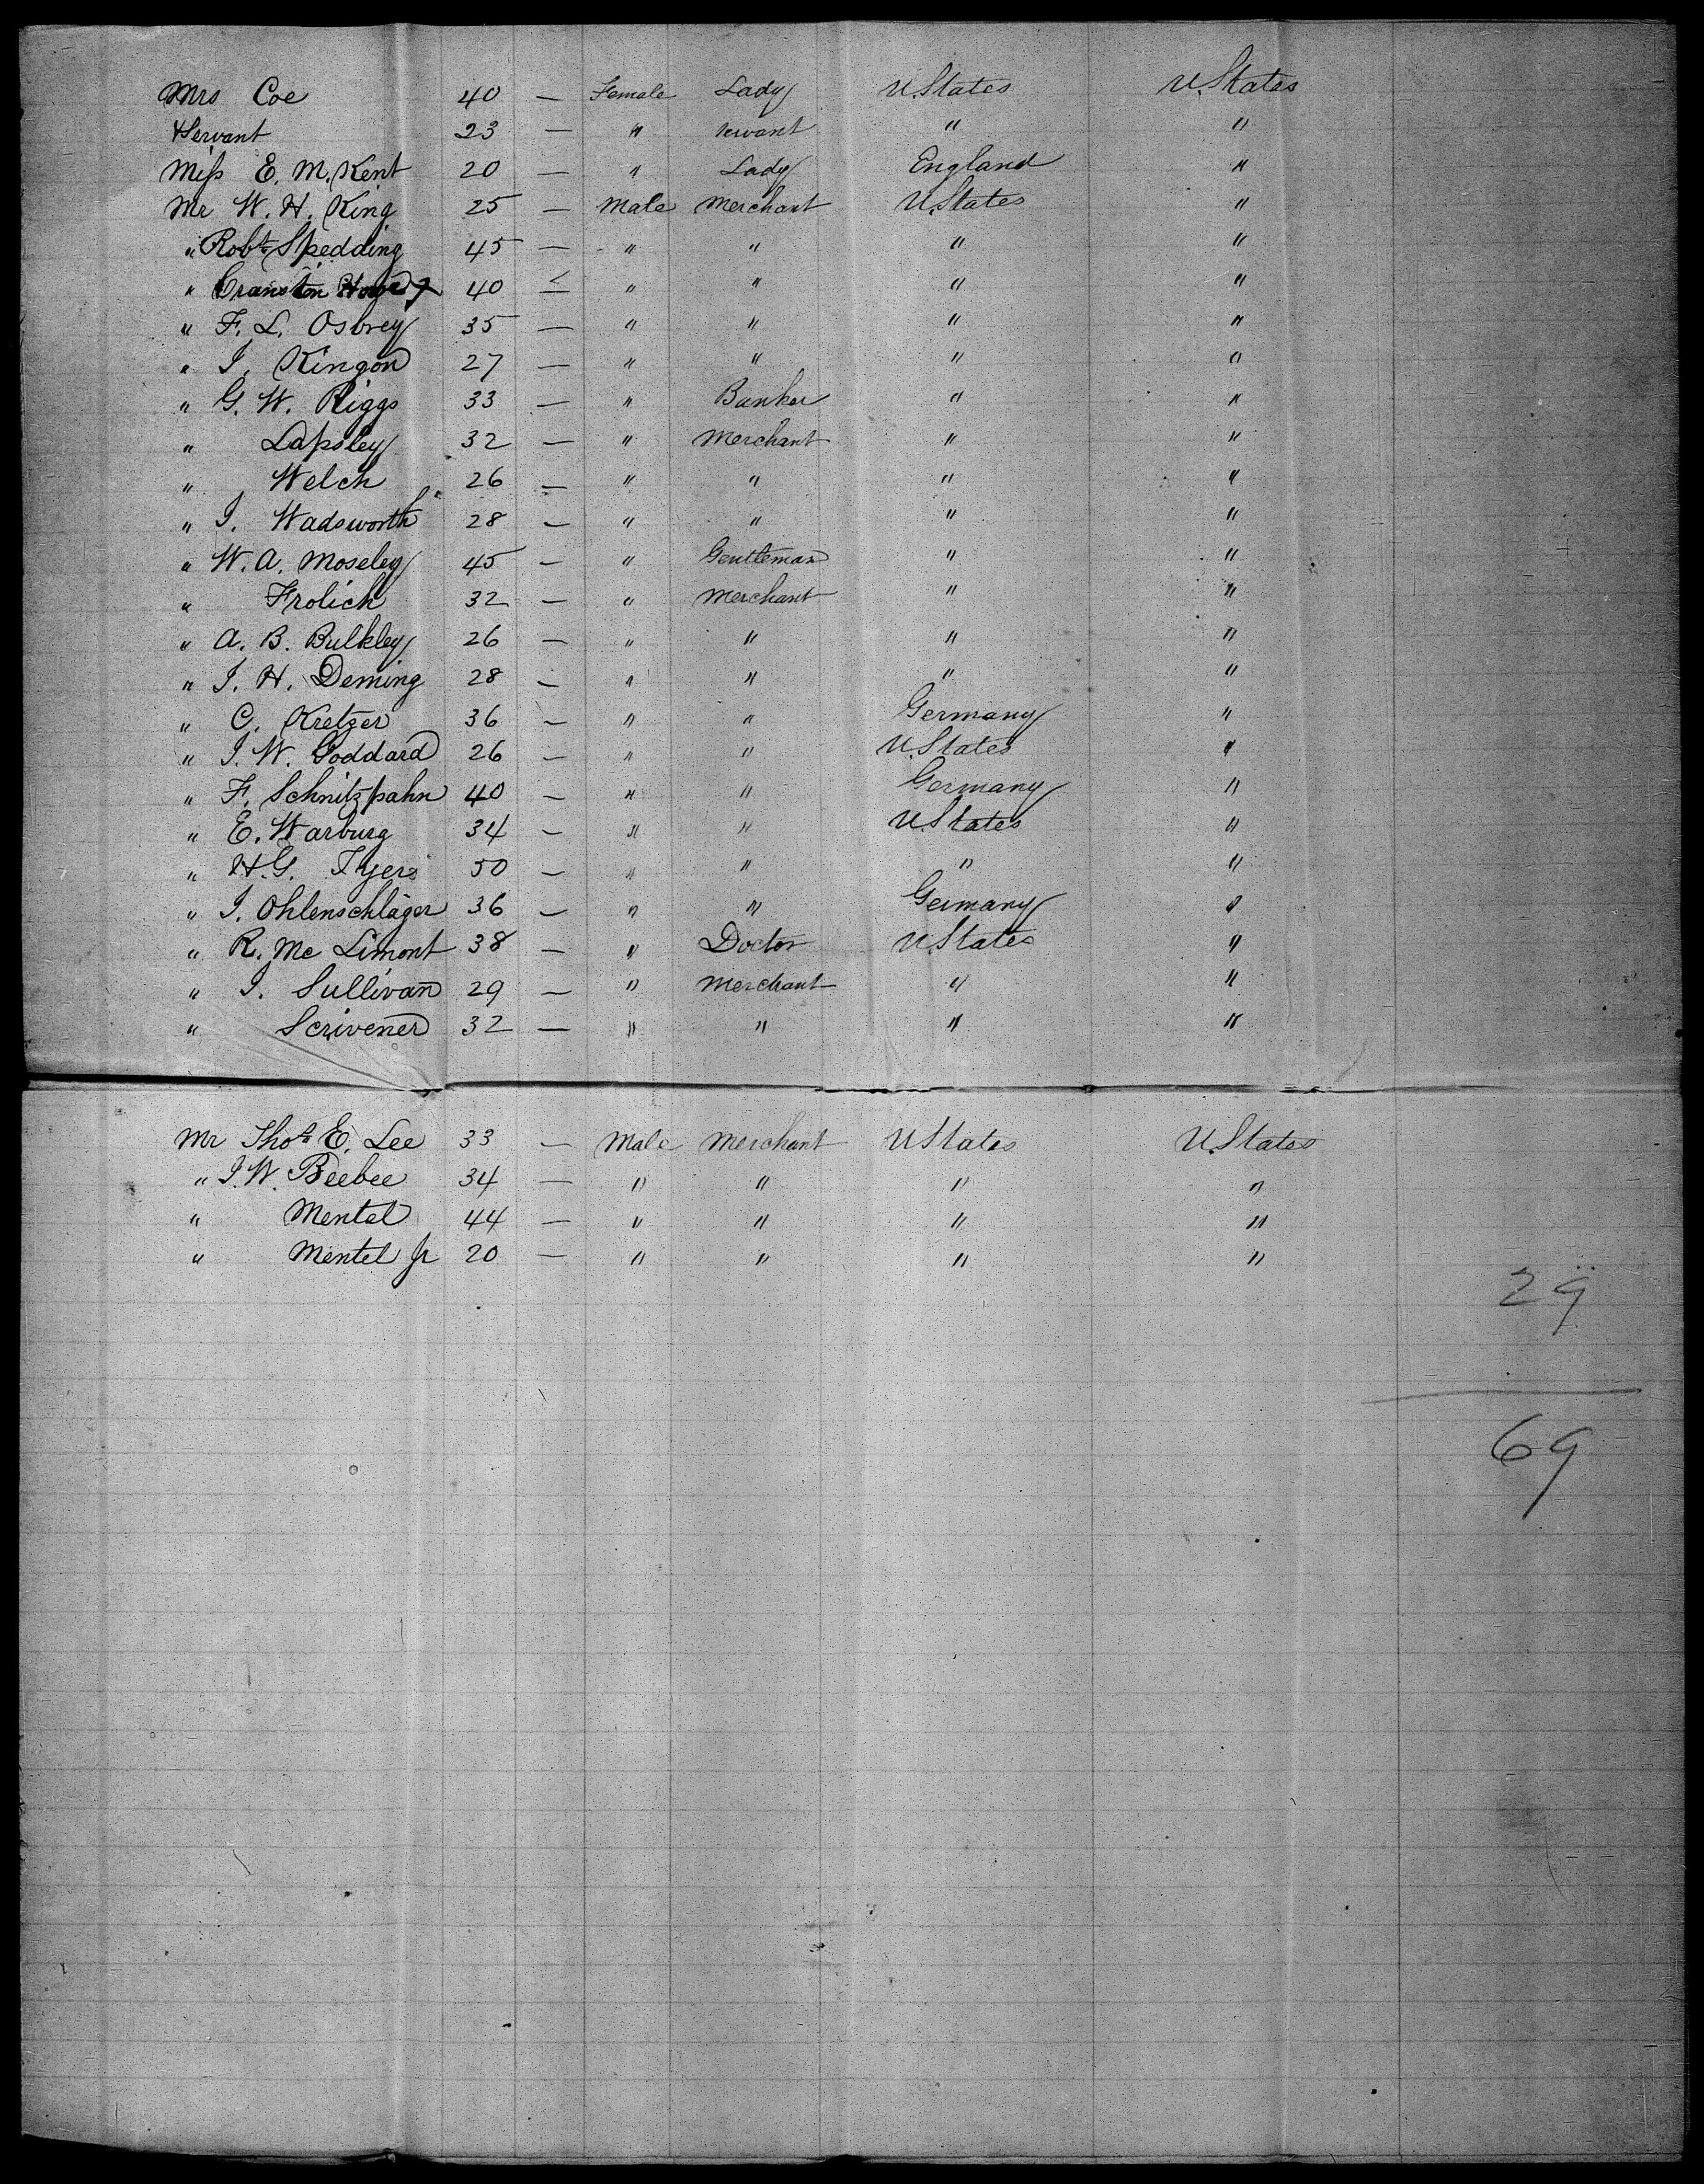 Mrs Coe 40 — Female Lady U.States U.States
& Servant 23 — " servant " "
Miss E. M. Kent 20 — " Lady England "
Mr W. H. King 25 — Male Merchant U.States "
" Robt Spedding 45 — " " " "
" Cranston 40 — " " " "
" F. L. Osbrey 35 — " " " "
" I. Kingon 27 — " " " "
" G. W. Riggs 33 — " Banker " "
" Lapsley 32 — " Merchant " "
" Welch 26 — " " " "
" I. Wadsworth 28 — " " " "
" W. A. Moseley 45 — " Gentleman " "
" Frolich 32 — " Merchant " "
" A. B. Bulkley 26 — " " " "
" I. H. Deming 28 — " " " "
" C. Kretzer 36 — " " Germany "
" I. W. Goddard 26 — " " U.States "
" F. Schnitzpahn 40 — " " Germany "
" E. Warburg 34 — " " U.States "
" H. G. Tyers 50 — " " " "
" I. Ohlenschläger 36 — " " Germany "
" R. Mc Limont 38 — " Doctor U.States "
" I. Sullivan 29 — " Merchant " "
" Scrivener 32 — " " " "
Mr Thos E. Lee 33 — Male Merchant U States U.States
" I. W. Beebee 34 — " " " "
" Mentel 44 — " " " "
" Mentel Jr 20 — " " " "
29
69